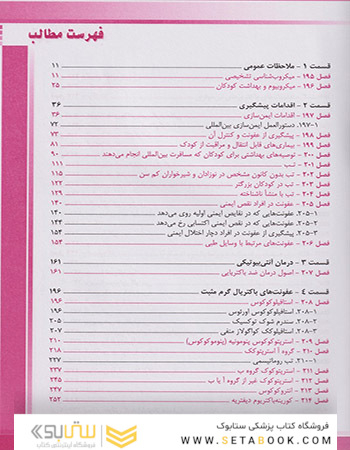 فهرست مطالب
قسمت ۱ - ملاحظات عمومی ۱۱
فصل ۱۹۵ - میکروب‌شناسی تشخیصی ۱۱
فصل ۱۹۶ - میکروبیوم و بهداشت کودکان ۲۵
قسمت ۲ - اقدامات پیشگیری ۳۶
فصل ۱۹۷ - اقدامات ایمن‌سازی ۳۶
۱۹۷-۱. دستورالعمل ایمن‌سازی بین‌المللی ۷۲
فصل ۱۹۸ - پیشگیری از عفونت و کنترل آن ۷۳
فصل ۱۹۹ - بیماری‌های قابل انتقال و مراقبت از کودک ۸۱
فصل ۲۰۰ - توصیه‌های بهداشتی برای کودکان که مسافرت بین‌المللی انجام می‌دهند ۹۰
فصل ۲۰۱ - تب ۱۱۱
فصل ۲۰۲ - تب بدون کانون مشخص در نوزادان و شیرخواران کم سن ۱۱۵
فصل ۲۰۳ - تب در کودکان بزرگتر ۱۲۲
فصل ۲۰۴ - تب با منشأ ناشناخته ۱۲۹
فصل ۲۰۵ - عفونت در افراد نقص ایمنی ۱۴۰
۲۰۵-۱. عفونت‌هایی که در نقایص ایمنی اولیه روی می‌دهد ۱۴۰
۲۰۵-۲. عفونت‌هایی که در نقص ایمنی اکتسابی رخ می‌دهد ۱۴۴
۲۰۵-۳. پیشگیری از عفونت در افراد دچار اختلال ایمنی ۱۵۴
فصل ۲۰۶ - عفونت‌های مرتبط با وسایل طبی ۱۵۴
قسمت ۳ - درمان آنتی‌بیوتیکی ۱۶۱
فصل ۲۰۷ - اصول درمان ضد باکتریایی ۱۶۱
قسمت ۴ - عفونت‌های باکتریال گرم مثبت ۱۹۶
فصل ۲۰۸ - استافیلوکوکوس ۱۹۶
۲۰۸-۱. استافیلوکوکوس اورئوس ۱۹۶
۲۰۸-۲. سندرم شوک توکسیک ۲۰۵
۲۰۸-۳. استافیلوکک کواگولاز منفی ۲۰۷
فصل ۲۰۹ - استرپتوکوکوس پنومونیه (پنوموکوکوس) ۲۱۰
فصل ۲۱۰ - گروه آ استرپتوکک ۲۱۸
۲۱۰-۱. تب روماتیسمی ۲۲۷
فصل ۲۱۱ - استرپتوکوک گروه ب ۲۳۷
فصل ۲۱۲ - استرپتوکوک غیر از گروه آ یا ب ۲۴۵
فصل ۲۱۳ - انتروکوکوس ۲۴۷
فصل ۲۱۴ - کورینه‌باکتریوم دیفتریه ۲۵۲
فروشگاه کتاب پزشکی ستابوک
WWW.SETABOOK.COM
ستابوک
فروشگاه اینترنتی کتاب